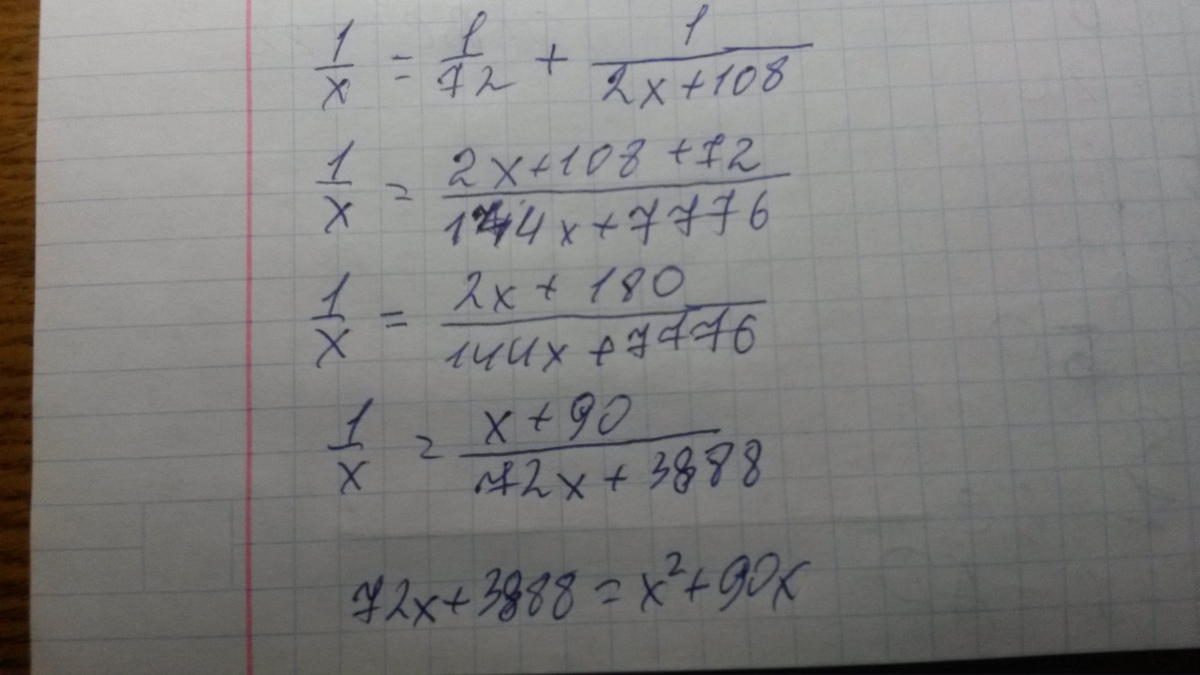 1/x = 1/72 + 1/(2x+108)
1/x = (2x+108+72)/(144x+7776)
1/x = (2x+180)/(144x+7776)
1/x = (x+90)/(72x+3888)
72x+3888=x²+90x